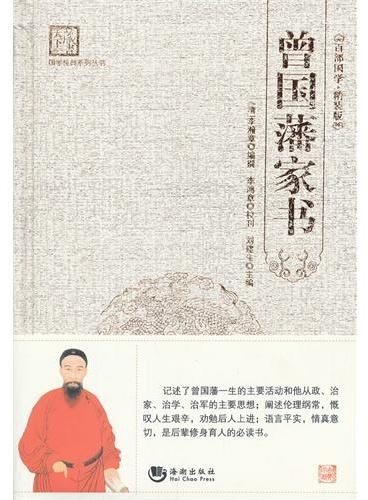 百部国学·精装版
曾国藩家书
[清]李瀚章◎编撰 李鸿章◎校刊 刘建生◎主编
国学经典系列丛书
记述了曾国藩一生的主要活动和他从政、治
家、治学、治军的主要思想；阐述伦理纲常，慨
叹人生艰辛，劝勉后人上进；语言平实，情真意
切，是后辈修身育人的必读书。
海潮出版社
Hai Chao Press